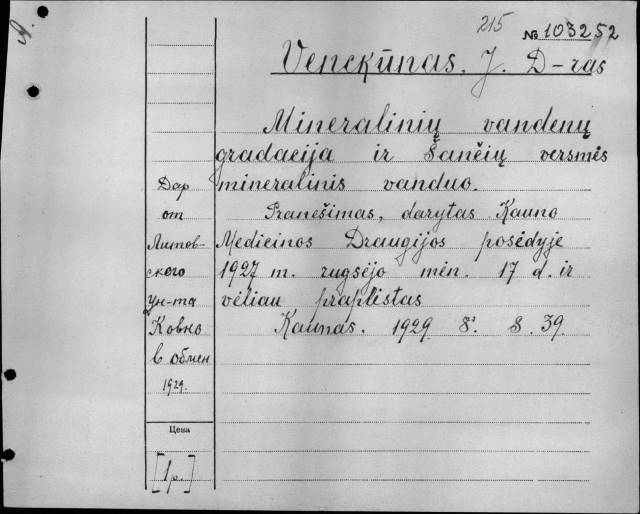 215
№ 103252
Venckūnas. J. D-ras
Mineralinių vandenų
gradacija ir Šančių versmės
mineralinis vanduo.
Pranešimas, darytas Kauno
Medicinos Draugijos posėdyje
1927 m. rugsėjo mėn. 17 d. ir
vėliau praplėstas
Kaunas. 1929 8º. S. 39.
Дар
от
Литов-
ского
ун-та
Ковно
в обмен
1929.
Цена
[1р.]